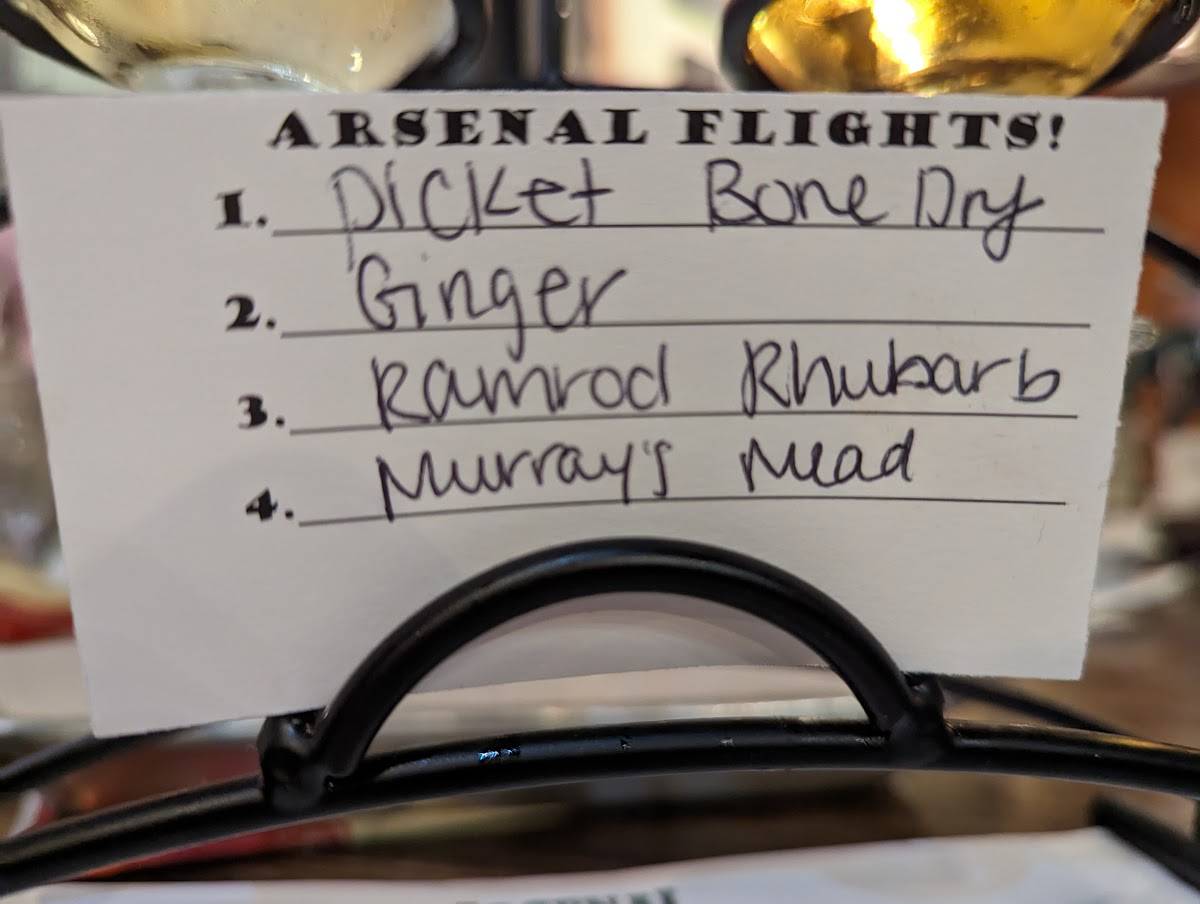 ARSENAL FLIGHTS!
1. Picket Bone Dry
2. Ginger
3. Ramrod Rhubarb
4. Murray's Mead